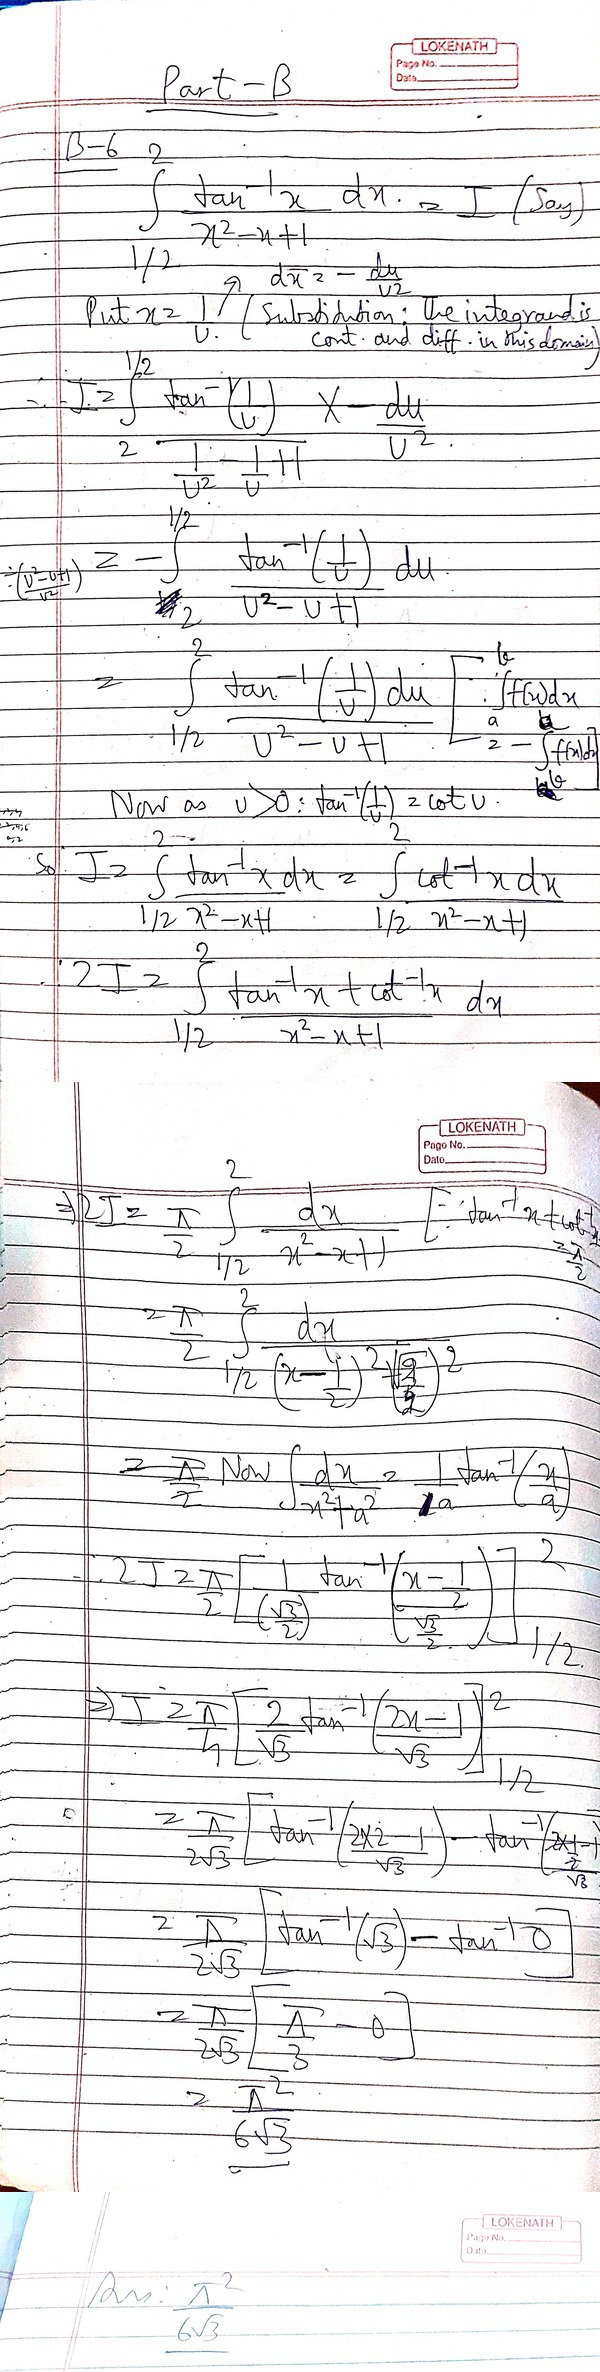 LOKENATH
Page No.
Date
Part-B
B-6
∫_{1/2}^{2} tan⁻¹x / (x²-x+1) dx. = I (Say)
dx = - du/u²
Put x = 1/u. (Substitution: The integrand is
cont. and diff. in this domain)
∴ I = ∫_{2}^{1/2} tan⁻¹(1/u) / (1/u² - 1/u + 1) × - du/u².
= - ∫_{2}^{1/2} tan⁻¹(1/u) / (u²-u+1) du.
÷ (u²-u+1)/u²
= ∫_{1/2}^{2} tan⁻¹(1/u) du / (u²-u+1) [∵ ∫_{a}^{b} f(x)dx
= - ∫_{b} f(x)dx]
Now as u>0: tan⁻¹(1/u) = cot u.
So I = ∫_{1/2}^{2} tan⁻¹x dx / (x²-x+1) = ∫_{1/2}^{2} cot⁻¹x dx / (x²-x+1)
∴ 2I = ∫_{1/2}^{2} (tan⁻¹x + cot⁻¹x) / (x²-x+1) dx
LOKENATH
Page No.
Date
⇒ 2I = π/2 ∫_{1/2}^{2} dx / (x²-x+1) [∵ tan⁻¹x + cot⁻¹x
= π/2
= π/2 ∫_{1/2}^{2} dx / ((x-1/2)² + (√3/2)²)
= π/2 Now ∫ dx / (x²+a²) = 1/a tan⁻¹(x/a)
∴ 2I = π/2 [1/(√3/2) tan⁻¹((x-1/2)/(√3/2))]_{1/2}^{2}
⇒ I = π/4 [2/√3 tan⁻¹((2x-1)/√3)]_{1/2}^{2}
= π/2√3 [tan⁻¹((2×2-1)/√3) - tan⁻¹((2×1/2-1)/√3)
= π/2√3 [tan⁻¹(√3) - tan⁻¹ 0]
= π/2√3 [π/3 - 0]
= π²/6√3
LOKENATH
Page No.
Date
Ans: π²/6√3